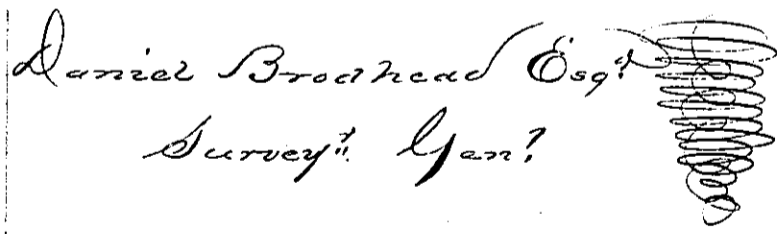 Daniel Brodhead Esqr.
Surveyr. Genl.